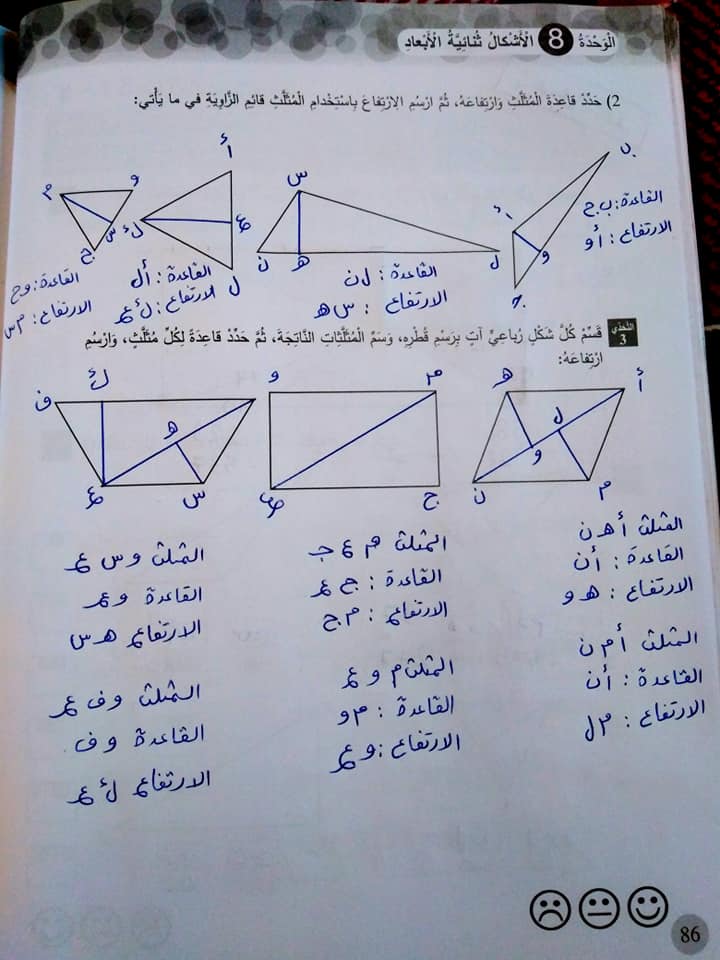 الْوَحْدَةُ 8 الْأَشْكالُ ثُنائِيَّةُ الْأَبْعادِ
2) حَدِّدْ قاعِدَةَ الْمُثَلَّثِ وَارْتِفاعَهُ، ثُمَّ ارْسُمِ الِارْتِفاعَ بِاسْتِخْدامِ الْمُثَلَّثِ قائِمِ الزَّاوِيَةِ في ما يَأْتي:
ب
أ
و
ج
القاعدة: ب ج
الارتفاع: أ و
س
ل
هـ
ن
القاعدة: ل ن
الارتفاع: س هـ
أ
ع
ك
ل
القاعدة: أ ل
الارتفاع: ك ع
و
م
س
ج
القاعدة: و ج
الارتفاع: م س
التَّحَدّي 3
قَسِّمْ كُلَّ شَكْلٍ رُباعِيٍّ آتٍ بِرَسْمِ قُطْرِهِ، وَسَمِّ الْمُثَلَّثاتِ النّاتِجَةَ، ثُمَّ حَدِّدْ قاعِدَةً لِكُلِّ مُثَلَّثٍ، وَارْسُمِ
ارْتِفاعَهُ:
أ
هـ
ل
و
م
ن
م
و
ج
ع
ك
ف
هـ
س
ع
المثلث أ هـ ن
القاعدة: أ ن
الارتفاع: هـ و
المثلث أ م ن
القاعدة: أ ن
الارتفاع: م ل
المثلث م ع ج
القاعدة: ج ع
الارتفاع: م ج
المثلث م و ع
القاعدة: م و
الارتفاع: و ع
المثلث و س ع
القاعدة و ع
الارتفاع هـ س
المثلث و ف ع
القاعدة و ف
الارتفاع ك ع
86